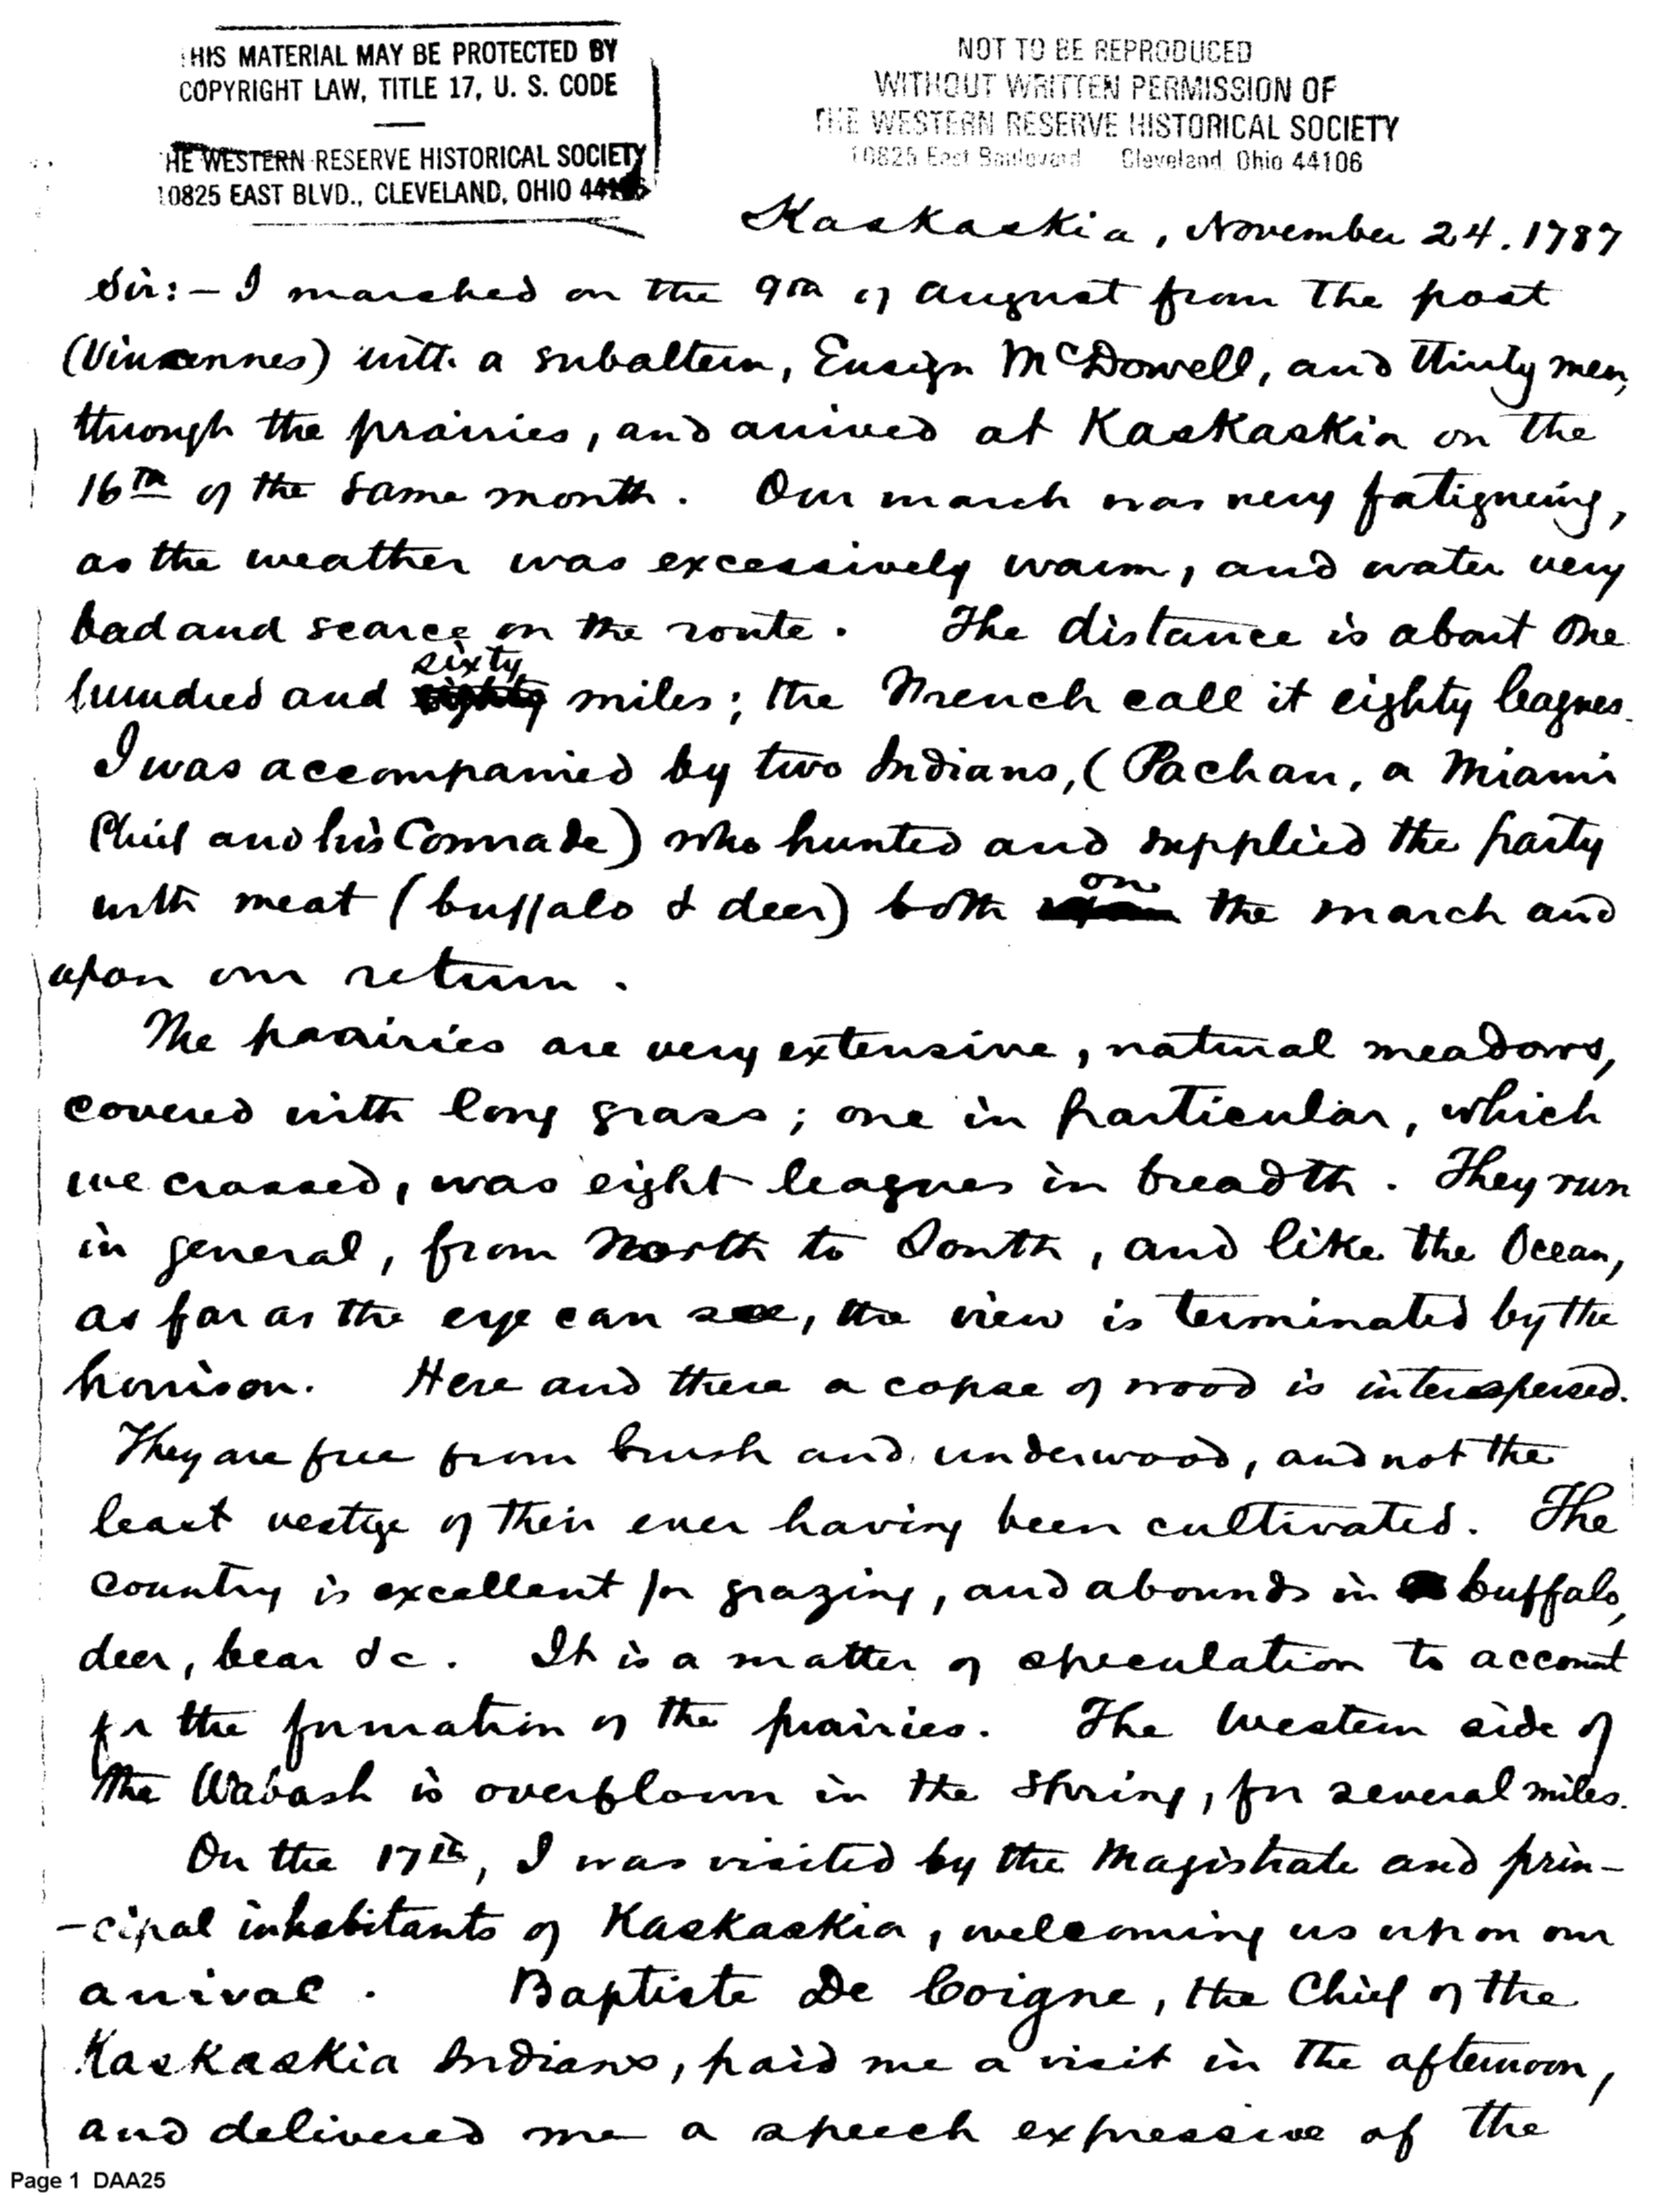 THIS MATERIAL MAY BE PROTECTED BY
COPYRIGHT LAW, TITLE 17, U. S. CODE
THE WESTERN RESERVE HISTORICAL SOCIETY
10825 EAST BLVD., CLEVELAND, OHIO 44106
NOT TO BE REPRODUCED
WITHOUT WRITTEN PERMISSION OF
THE WESTERN RESERVE HISTORICAL SOCIETY
10825 East Boulevard Cleveland, Ohio 44106
Kaskaskia, November 24. 1787
Sir:- I marched on the 9th of August from the post
(Vincennes) with a subaltern, Ensign McDowell, and thirty men,
through the prairies, and arrived at Kaskaskia on the
16th of the same month. Our march was very fatigueing,
as the weather was excessively warm, and water very
bad and scarce on the route. The distance is about One
hundred and sixty miles; the French call it eighty leagues.
I was accompanied by two Indians, (Pachan, a Miami
Chief and his Comrade) who hunted and supplied the party
with meat (buffalo & deer) both on the march and
upon our return.
The praairies are very extensive, natural meadows,
covered with long grass; one in particular, which
we crossed, was eight leagues in breadth. They run
in general, from North to South, and like the Ocean,
as far as the eye can see, the view is terminated by the
horrison. Here and there a copse of wood is interspersed.
They are free from brush and underwood, and not the
least vestige of their ever having been cultivated. The
country is excellent for grazing, and abounds in buffalo,
deer, bear &c. It is a matter of speculation to account
for the formation of the prairies. The western side of
the Wabash is overflown in the spring, for several miles.
On the 17th, I was visited by the Magistrate and prin-
-cipal inhabitants of Kaskaskia, welcoming us upon our
arrival. Baptiste De Coigne, the Chief of the
Kaskaskia Indians, paid me a visit in the afternoon,
and delivered me a speech expressive of the
Page 1 DAA25